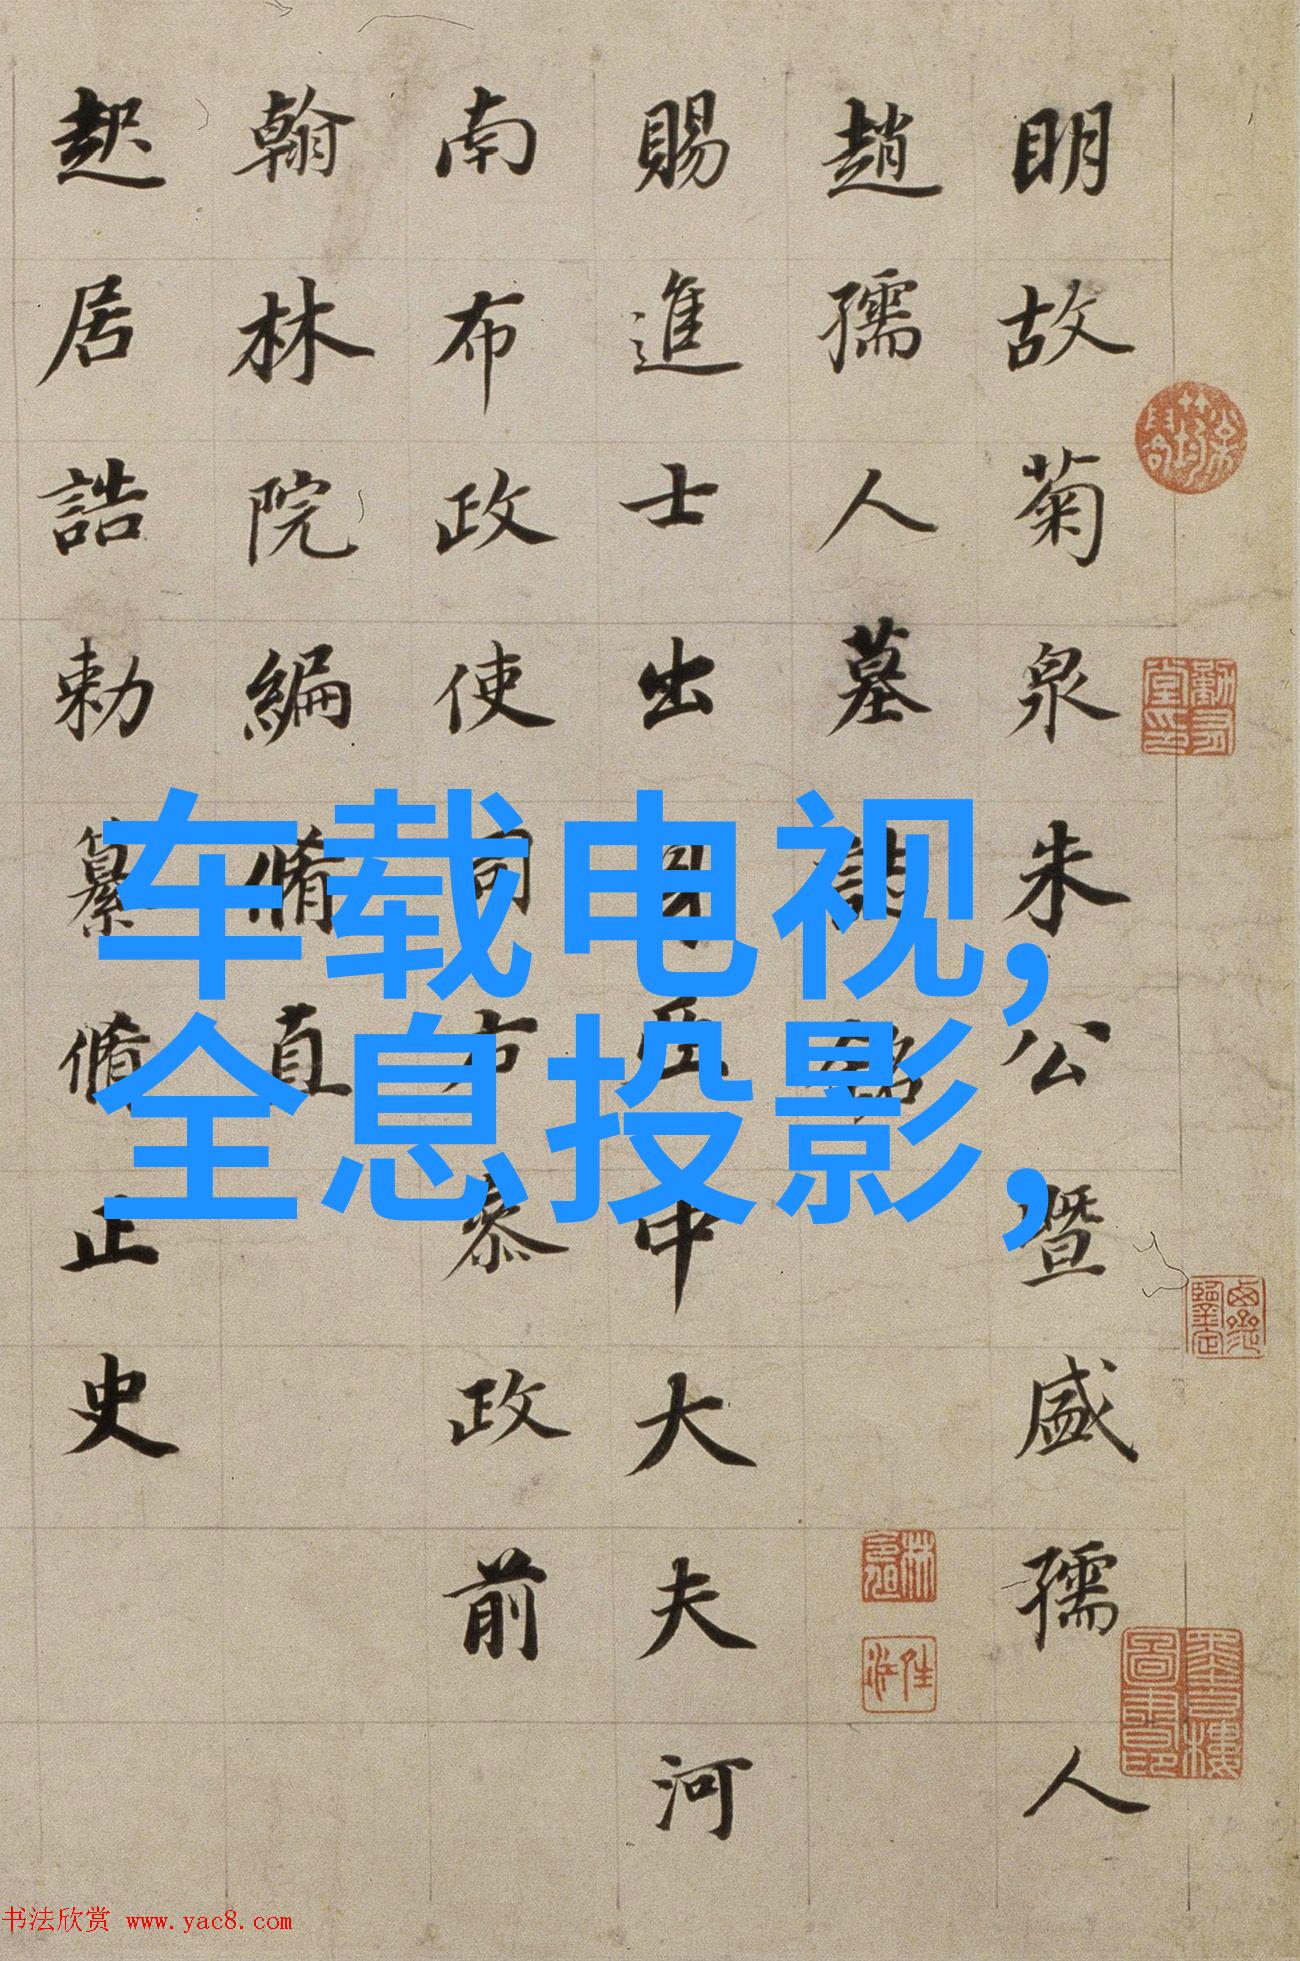 明故菊泉朱公暨盛孺人
趙孺人墓誌銘
賜進士出身亞中大夫河
南布政使司右叅政前
翰林院編脩直
起居誥勅纂脩正史
车载电视,
全息投影,
书法欣赏 www.yac8.com